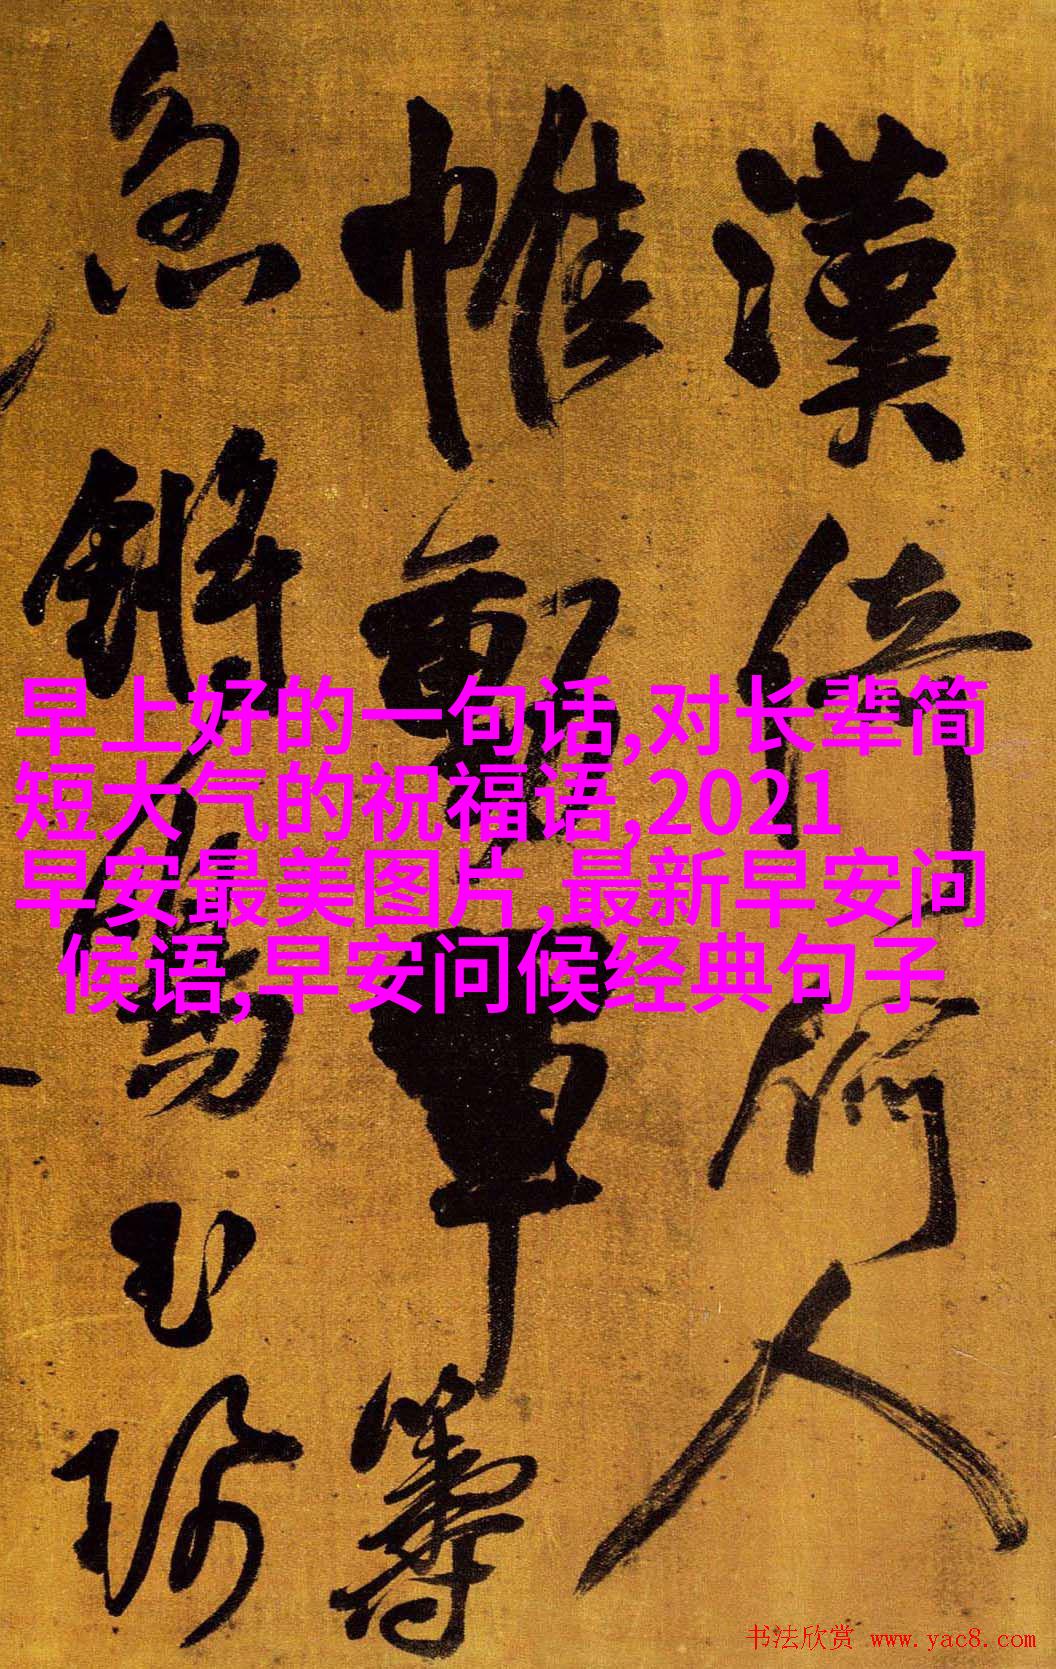 漢 人
帷 軍籌
急鏘 玉珂
早上好的一句话,对长辈简
短大气的祝福语,2021
早安最美图片,最新早安问
候语,早安问候经典句子
书法欣赏 www.yac8.com